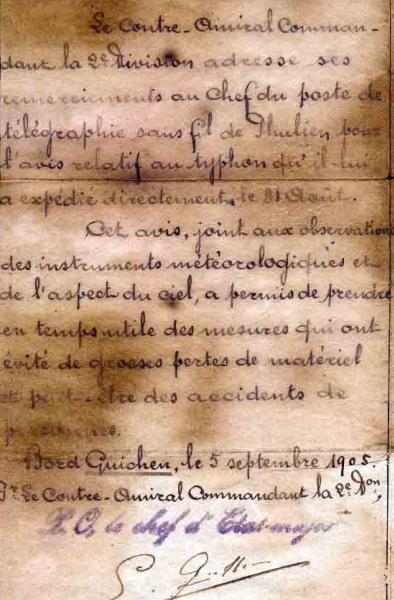 Le Contre-Amiral Comman-
dant la 2e Division adresse ses
remerciements au Chef du poste de
télégraphie sans fil de Phulien pour
l'avis relatif au typhon qu'il lui
a expédié directement, le 31 Août.
Cet avis, joint aux observations
des instruments météorologiques et
de l'aspect du ciel, a permis de prendre
en temps utile des mesures qui ont
évité de grosses pertes de matériel
et peut-être des accidents de
personnes.
Bord Guichen, le 5 septembre 1905.
Pr Le Contre-Amiral Commandant la 2e Don,
P. O. le chef d'Etat-major